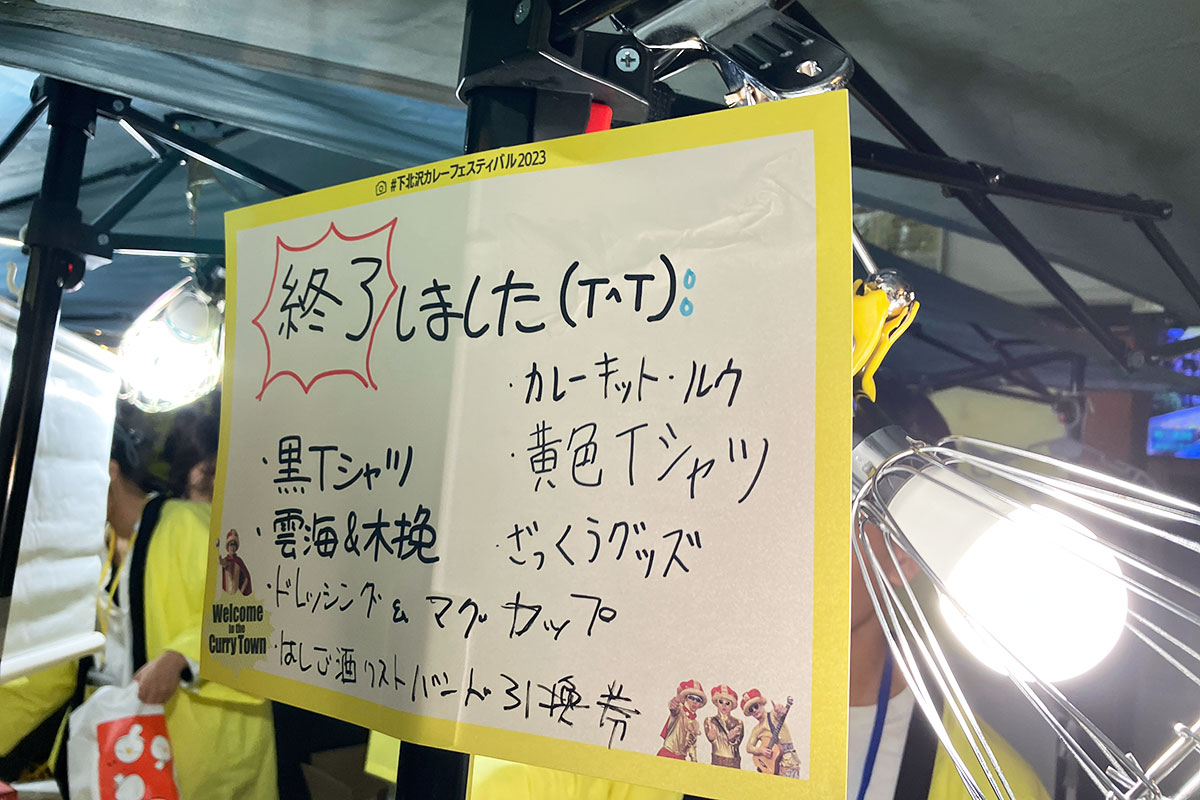 #下北沢カレーフェスティバル2023
終了しました(T^T)
・カレーキット・ルウ
・黒Tシャツ
・黄色Tシャツ
・雲海&木挽
・ざっくうグッズ
・ドレッシング&マグカップ
・はしご酒リストバンド引換券
Welcome
to the
Curry Town